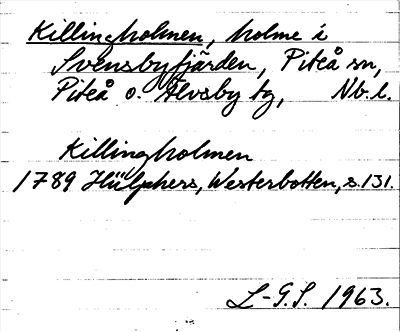 Killingholmen, holme i
Svensbyfjärden, Piteå sn,
Piteå o. Älvsby tg, Nb.l.
Killingholmen
1789 Hülphers, Westerbotten, s.131.
L-G.S. 1963.